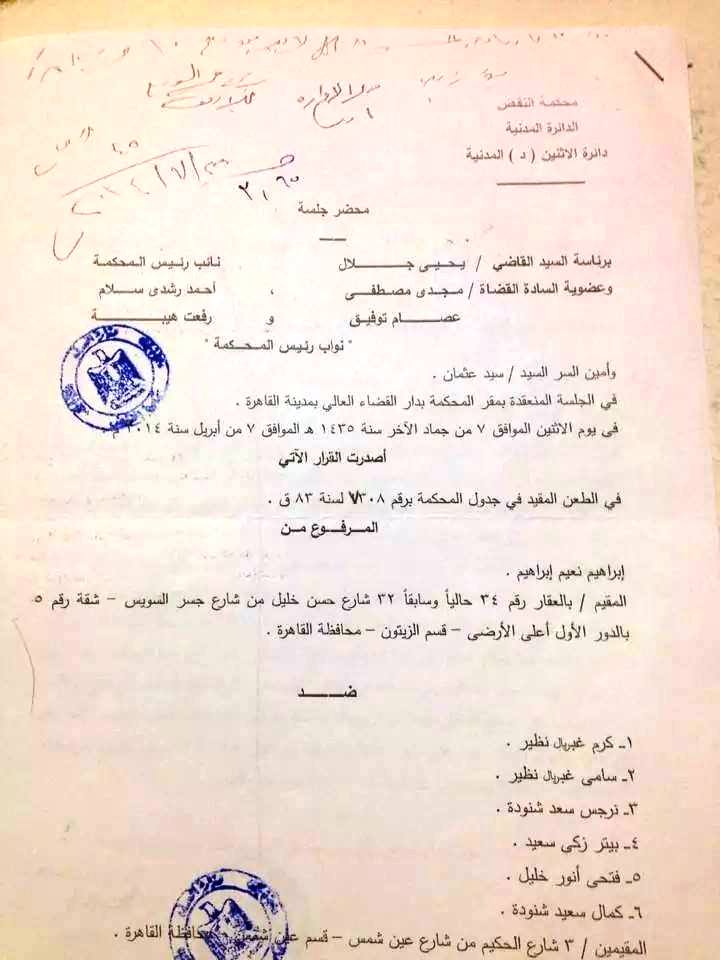 محكمة النقض
الدائرة المدنية
دائرة الاثنين ( د ) المدنية
محضر جلسة
برئاسة السيد القاضي / يحيـى جـــلال نائب رئيس المحكمة
وعضوية السادة القضاة / مجـدى مصطفـى ، أحمد رشدى ســلام
عصـــام توفيق و رفعت هيبـــة
" نواب رئيس المحكمة "
وأمين السر السيد / سيد عثمان .
في الجلسة المنعقدة بمقر المحكمة بدار القضاء العالي بمدينة القاهرة .
فى يوم الاثنين الموافق ٧ من جماد الآخر سنة ١٤٣٥ هـ الموافق ٧ من أبريل سنة ٢٠١٤ م .
أصدرت القرار الآتي
في الطعن المقيد في جدول المحكمة برقم ٧٣٠٨ لسنة ٨٣ ق .
المـرفـوع مـن
إبراهيم نعيم إبراهيم .
المقيم / بالعقار رقم ٣٤ حالياً وسابقاً ٣٢ شارع حسن خليل من شارع جسر السويس – شقة رقم ٥
بالدور الأول أعلى الأرضى – قسم الزيتون – محافظة القاهرة .
ضـــــد
١ـ كرم غبريال نظير .
٢ـ سامى غبريال نظير .
٣ـ نرجس سعد شنودة .
٤ـ بيتر زكى سعيد .
٥ـ فتحى أنور خليل .
٦ـ كمال سعيد شنودة .
المقيمين / ٣ شارع الحكيم من شارع عين شمس – قسم عين شمس – محافظة القاهرة .